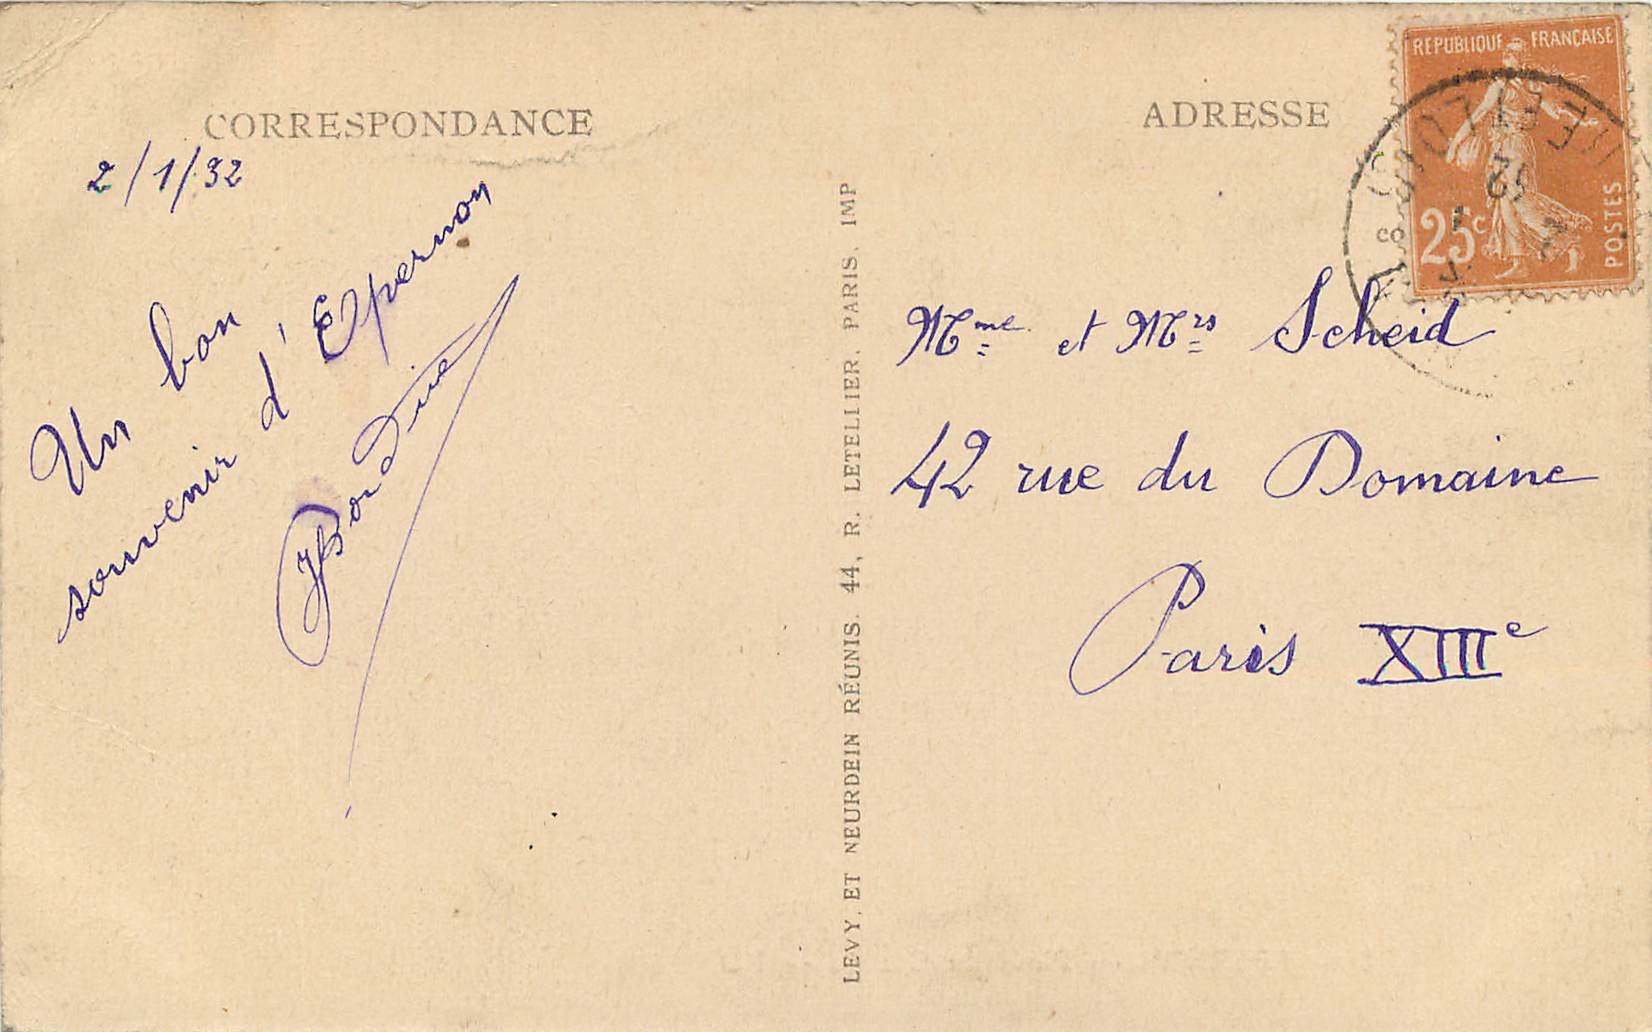 CORRESPONDANCE
2/1/32
Un bon
souvenir d'Epernon
ADRESSE
REPUBLIQUE FRANÇAISE
25c
POSTES
Mme et Mrs Scheid
42 rue du Domaine
Paris XIIIe
LEVY. ET NEURDEIN RÉUNIS. 44, R. LETELLIER. PARIS. IMP